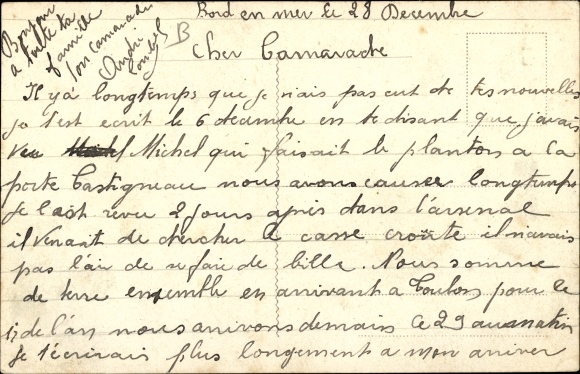 Bonjour
a toute ta
famille
ton camarade
André
B
Bord en mer le 28 Decembre
Cher Camarade
Il y a longtemps que je n'ais pas eut de tes nouvelles
je t'est ecrit le 6 decembre en te disant que j'avais
vu Michel qui faisait le planton a la
porte Castigneau nous avons causer longtemps
je l'ait revu 2 jours après dans l'arsenal
il venait de chercher le casse croûte il n'avais
pas l'air de se faire de bille. Nous somme
de terre ensemble en arrivant a Toulon pour le
1er de l'an nous arrivons demain le 29 au matin
Je t'écrirais plus longement a mon arriver